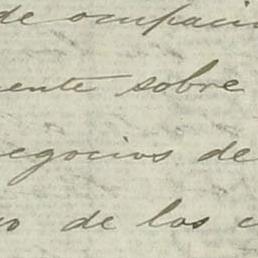 de ocupacio
mente sobre
negocios de
de los